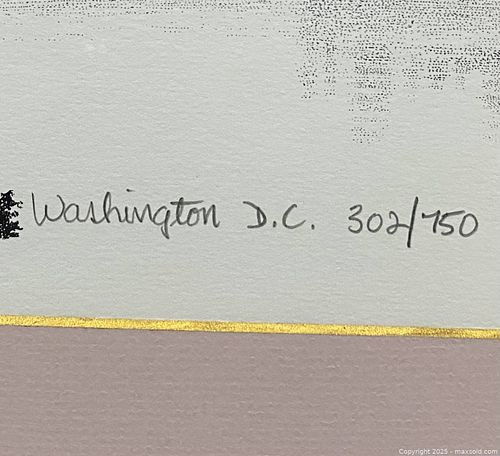 Washington D.C. 302/750
Copyright 2025 - maxsold.com